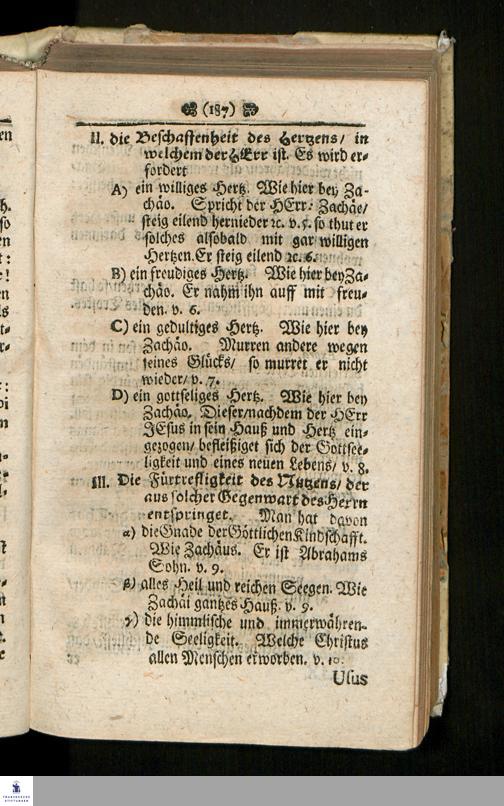 (187)
II. die Beschaffenheit des Hertzens/ in
welchem der HErr ist. Es wird er-
fordert
A) ein williges Hertz. Wie hier bey Za-
chäo. Spricht der HErr: Zachäe/
steig eilend hernieder ꝛc. v. 5. so thut er
solches alsobald mit gar willigen
Hertzen. Er steig eilend ꝛc. 6.
B) ein freudiges Hertz. Wie hier bey Za-
chäo. Er nahm ihn auff mit freu-
den. v. 6.
C) ein gedultiges Hertz. Wie hier bey
Zachäo. Murren andere wegen
seines Glücks/ so murret er nicht
wieder/ v. 7.
D) ein gottseliges Hertz. Wie hier bey
Zachäo. Dieser/ nachdem der HErr
JEsus in sein Hauß und Hertz ein-
gezogen/ befleißiget sich der Gottsee-
ligkeit und eines neuen Lebens/ v. 8.
III. Die Fürtrefligkeit des Nutzens/ der
aus solcher Gegenwart des Herrn
entspringet. Man hat davon
α) die Gnade der Göttlichen Kindschafft.
Wie Zachäus. Er ist Abrahams
Sohn. v. 9.
β) alles Heil und reichen Seegen. Wie
Zachäi gantzes Hauß. v. 9.
γ) die himmlische und immerwähren-
de Seeligkeit. Welche Christus
allen Menschen erworben. v. 10.
Usus